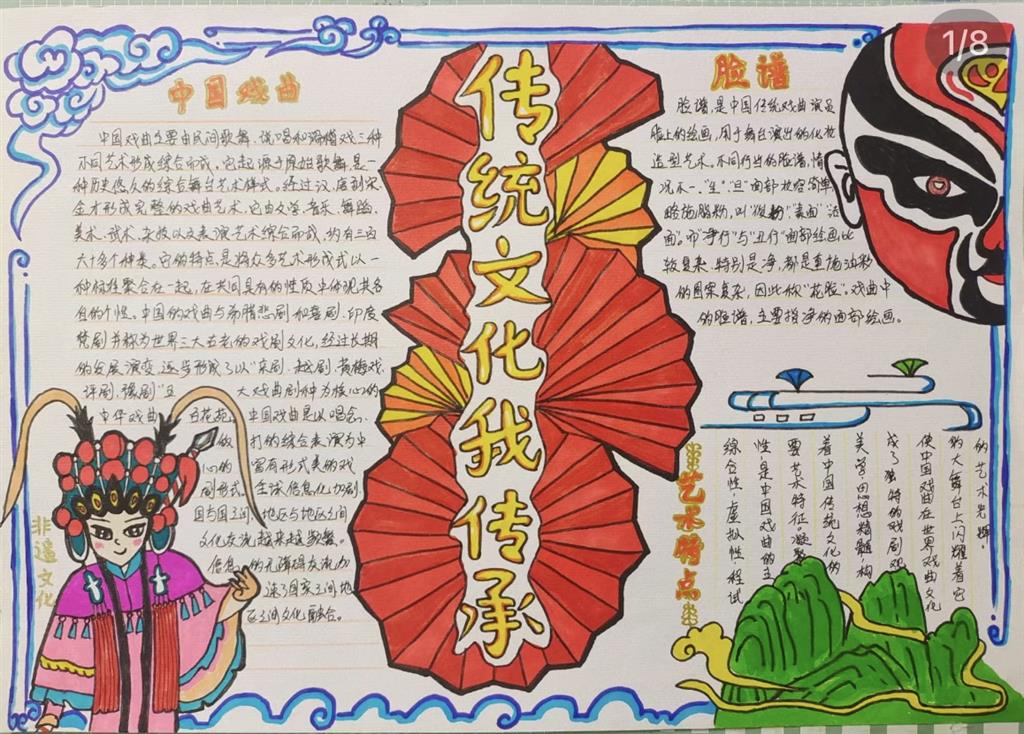 1/8
中国戏曲
中国戏曲主要由民间歌舞、说唱和滑稽戏三种
不同艺术形式综合而成。它起源于原始歌舞,是一
种历史悠久的综合舞台艺术样式。经过汉、唐到宋、
金才形成完整的戏曲艺术,它由文学、音乐、舞蹈、
美术、武术、杂技以及表演艺术综合而成,约有三百
六十多个种类。它的特点是将众多艺术形式以一
种标准聚合在一起,在共同具有的性质中体现其各
自的个性。中国的戏曲与希腊悲剧和喜剧、印度
梵剧并称为世界三大古老的戏剧文化,经过长期
的发展演变,逐步形成了以“京剧、越剧、黄梅戏、
评剧、豫剧”五大戏曲剧种为核心的
中华戏曲百花苑。中国戏曲是以唱、念、
做、打的综合表演为中
心的富有形式美的戏
剧形式。全球信息化加剧,
国与国之间、地区与地区之间
文化交流越来越频繁。
信息的无障碍交流加
速了国家之间、地
区之间文化融合。
非遗文化
传统文化我传承
脸谱
脸谱,是中国传统戏曲演员
脸上的绘画,用于舞台演出的化妆
造型艺术。不同行当的脸谱,情
况不一。“生”、“旦”面部妆容简单,
略施脂粉,叫“俊扮”“素面”“洁
面”。而“净行”与“丑行”面部绘画比
较复杂,特别是净,都是重施油彩
的图案复杂,因此称“花脸”。戏曲中
的脸谱,主要指净的面部绘画。
艺术特点
的艺术光辉。
的大舞台上闪耀着它
使中国戏曲在世界戏曲文化
成了独特的戏剧观,
美学思想精髓,构
着中国传统文化的
要艺术特征。凝聚
性,是中国戏曲的主
综合性、虚拟性、程式